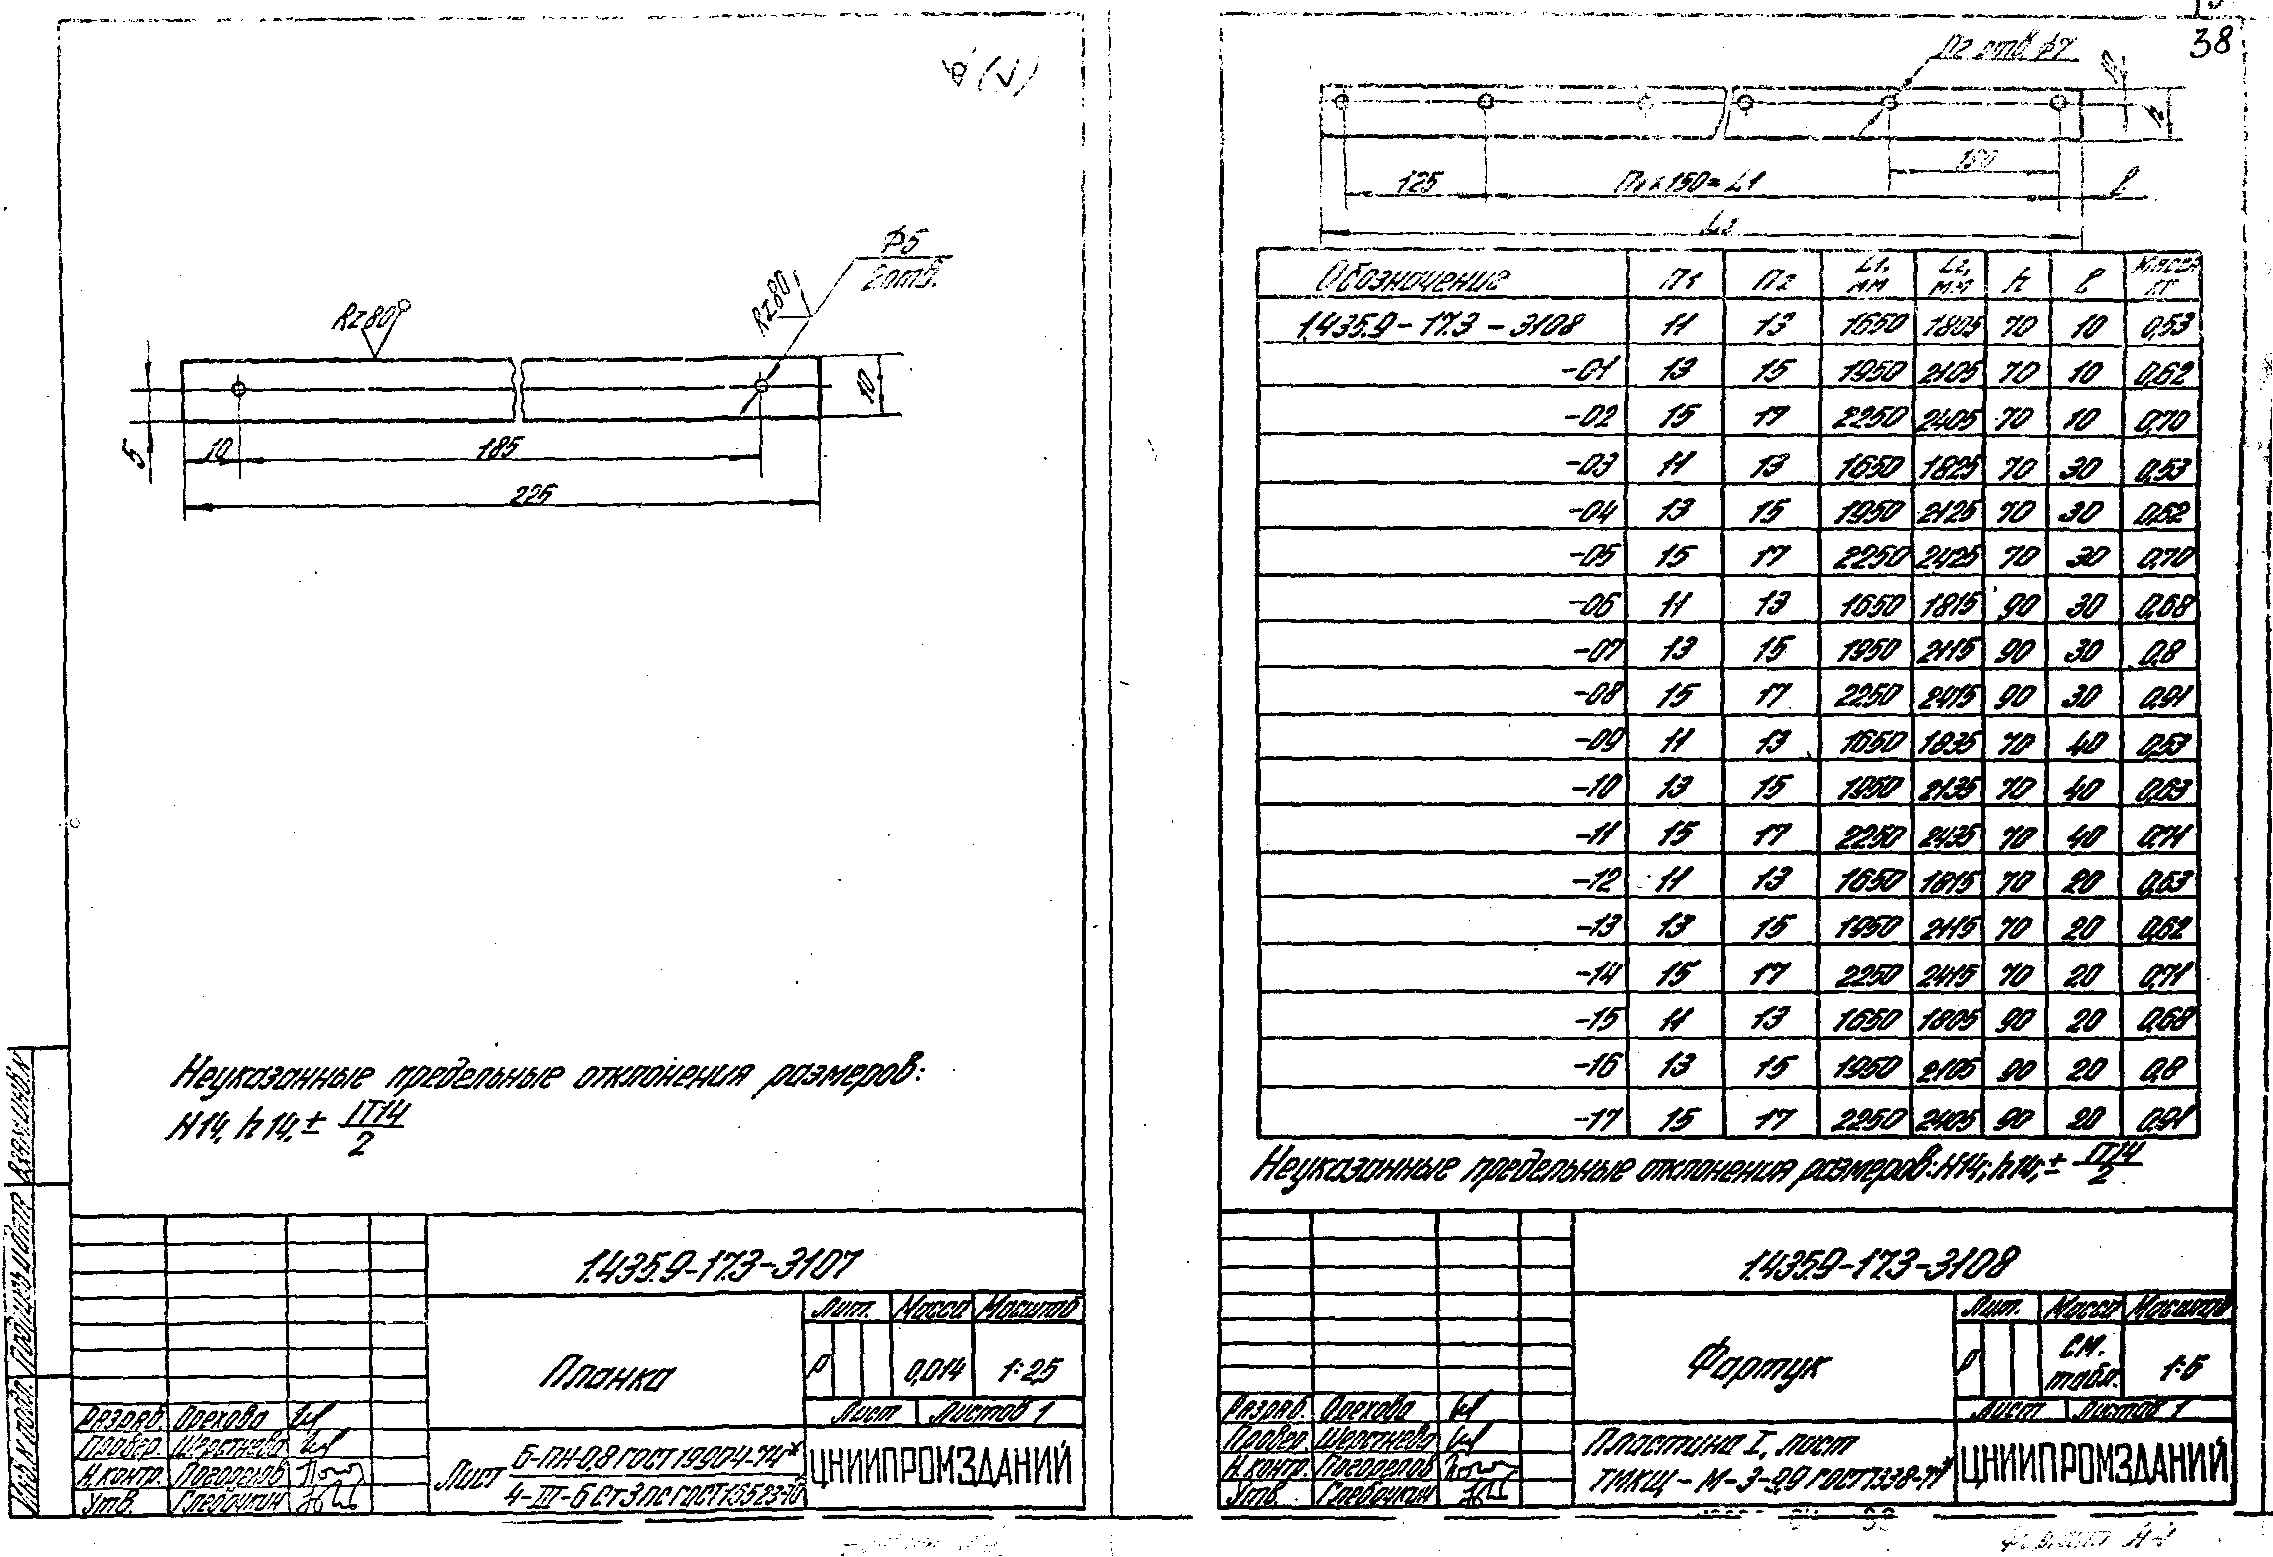 38
Rz80
Rz80
Φ5
2 отв.
5
10
185
225
10
Неуказанные предельные отклонения размеров:
H14, h14, ± IT14
2
1.435.9-17.3-3107
Планка
Лит. Масса Масштаб
Р 0,014 1:2,5
Лист Листов 1
Разраб. Орехова
Провер. Шерстнева
Н.контр.
Утв.
Лист Б-ПН-0,8 ГОСТ 19904-74*
ЦНИИПРОМЗДАНИЙ
Подпись и дата
n2 отв. φ7
150
125
n1×150=L1
ℓ
L2
Обозначение n1 n2 L1, мм L2, мм h ℓ Масса кг
1.435.9-17.3-3108 11 13 1650 1805 70 10 0,53
-01 13 15 1950 2105 70 10 0,62
-02 15 17 2250 2405 70 10 0,70
-03 11 13 1650 1825 70 30 0,53
-04 13 15 1950 2125 70 30 0,62
-05 15 17 2250 2425 70 30 0,70
-06 11 13 1650 1815 90 30 0,68
-07 13 15 1950 2115 90 30 0,8
-08 15 17 2250 2415 90 30 0,91
-09 11 13 1650 1835 70 40 0,53
-10 13 15 1950 2135 70 40 0,63
-11 15 17 2250 2435 70 40 0,71
-12 11 13 1650 1815 70 20 0,53
-13 13 15 1950 2115 70 20 0,62
-14 15 17 2250 2415 70 20 0,71
-15 11 13 1650 1805 90 20 0,68
-16 13 15 1950 2105 90 20 0,8
-17 15 17 2250 2405 90 20 0,91
Неуказанные предельные отклонения размеров: H14; h14; ± IT14
2
1.435.9-17.3-3108
Фартук
Лит. Масса Масштаб
Р см. табл. 1:5
Лист Листов 1
Разраб. Орехова
Провер. Шерстнева
Н.контр.
Утв.
Пластина I, лист
ТМКЩ-М-3-9,9 ГОСТ 7338-77*
ЦНИИПРОМЗДАНИЙ